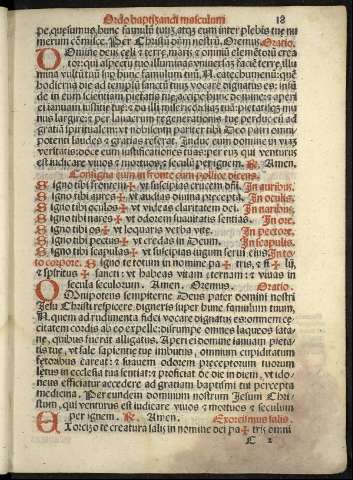 Ordo baptisandi masculum 18
pe, quesumus, hunc famulū tuū, atqz eum inter plebis tue nu
merum cōmisce. Per Christū dñm nostrū. Oremus. Oratio.
Domine deus celi et terre, maris et omniū elemētorū crea
tor: qui aspectu tuo illuminas vniuersaz facē terre, illu
mina vultū tuū sup hunc famulum tuū. N. catechumenū: quē
hodierna die ad templū sanctū tuū vocare dignatus es: insu
de in eum scientiam pietatis tue,
ri ianuam iustitie tue: et da illi misericordiaz tuā: pietatisqz mu
nus largire: et per lauacrum regenerationis tue perduc eū ad
gratiā spiritualem: vt nobilem pariter tibi Deo patri omni
potenti laudes et gratias referat. Induc eum domine in vias
veritatis: doce eum iustificationes tuas: per eūz qui venturus
est iudicare viuos et mortuos, et seculū per ignem. R. Amen.
Consigna eum in fronte cum pollice dicens.
Signo tibi frontem ✠ vt suscipias crucem dñi. In auribus.
Signo tibi aures ✠ vt audias diuina precepta. In oculis.
Signo tibi oculos ✠ vt videas claritatem dei. In naribus.
Signo tibi nares ✠ vt odorem suauitatis sentias. In ore.
Signo tibi os ✠ vt loquaris verba vite. In pectore.
Signo tibi pectus ✠ vt credas in Deum. In scapulis.
Signo tibi scapulas ✠ vt suscipias iugum serui eius. In to
to corpore. Signo te totum in nomine pa ✠ tris, et fi ✠ lij,
et spiritus ✠ sancti: vt habeas vitam eternam: et viuas in
secula seculorum. Amen. Oremus. Oratio.
Omnipotens sempiterne Deus pater domini nostri
Jesu Christi respicere digneris super hunc famulum tuum,
N. quem ad rudimenta fidei vocare dignatus es: omnem ce
citatem cordis ab eo expelle: disrumpe omnes laqueos sata
ne, quibus fuerit alligatus. Aperi ei domine ianuam pieta
tis tue, vt sale sapientie tue imbutus, omnium cupiditatum
fetoribus careat: et suauem odorem preceptorum tuorum
letus in ecclesia tua sentiat: et proficiat de die in diem, vt ido
neus efficiatur accedere ad gratiam baptismi tui percepta
medicina. Per eundem dominum nostrum Jesum Chri
stum, qui venturus est iudicare viuos et mortuos et seculum
per ignem. R. Amen. Exorcismus salis.
Exorcizo te creatura salis in nomine dei pa ✠ tris omni
C 2